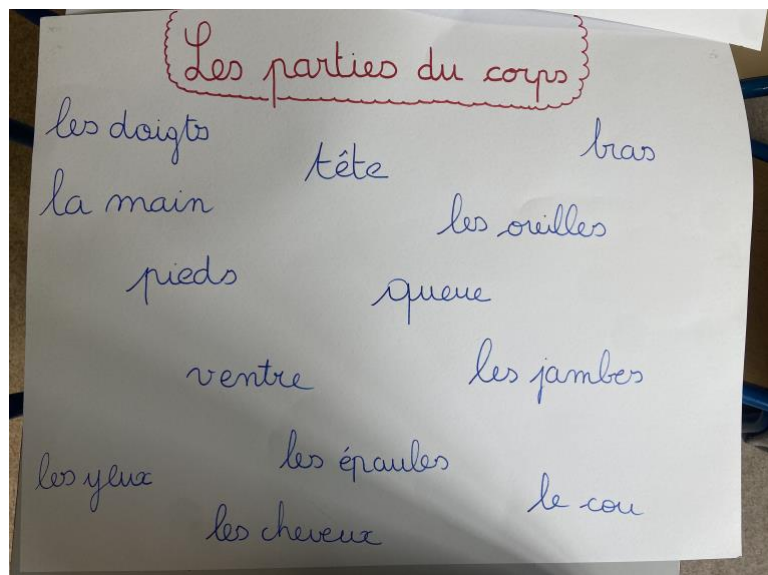 Les parties du corps
les doigts
tête
bras
la main
les oreilles
pieds
queue
ventre
les jambes
les épaules
les yeux
le cou
les cheveux